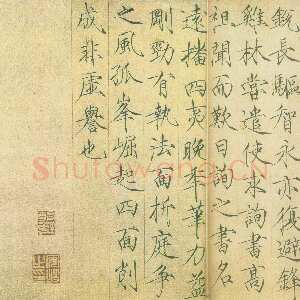 銳長驅智永亦復避鋒
雞林嘗遣使求詢書高
祖聞而歎曰詢之書名
遠播四夷晚年筆力益
剛勁有執法面折庭爭
之風孤峯崛起四面削
成非虛譽也
Shufawang.CN